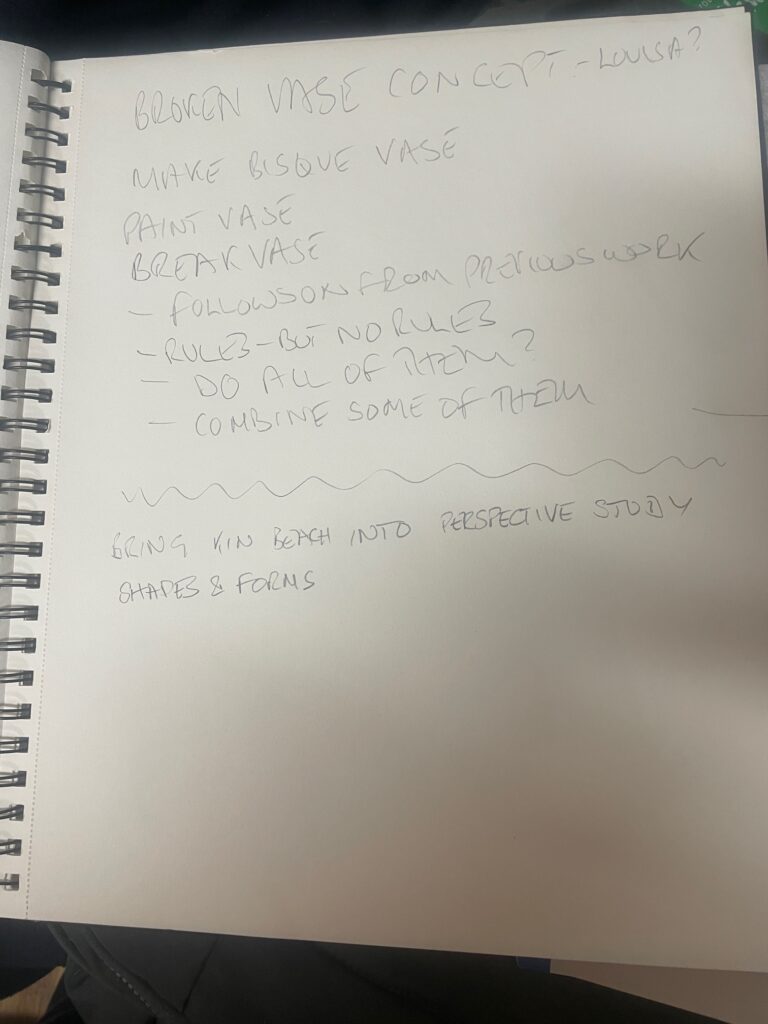 BROKEN VASE CONCEPT - LOUISA?
MAKE BISQUE VASE
PAINT VASE
BREAK VASE
- FOLLOWS ON FROM PREVIOUS WORK
- RULES - BUT NO RULES
- DO ALL OF THEM?
- COMBINE SOME OF THEM
BRING BEACH INTO PERSPECTIVE STUDY
SHAPES & FORMS